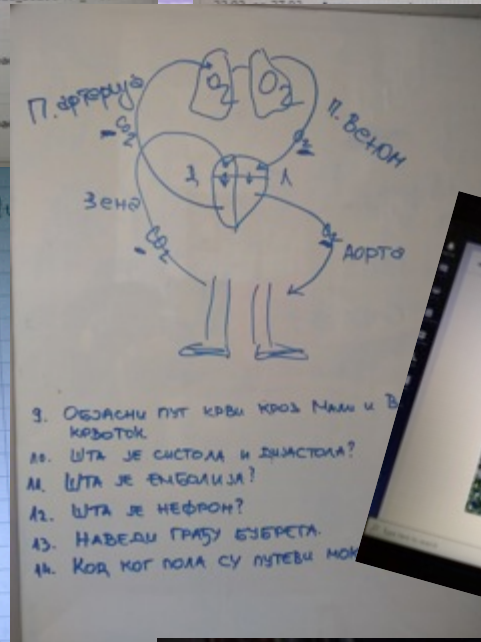 O2 O2
П. артерија
П. ВЕНОН
CO2
O2
Д Л
Зена
CO2
O2
АОРТА
9. ОБЈАСНИ ПУТ КРВИ КРОЗ МАЛИ И В
КРВОТОК.
10. ШТА ЈЕ СИСТОЛА И ДИЈАСТОЛА?
11. ШТА ЈЕ ЕМБОЛИЈА?
12. ШТА ЈЕ НЕФРОН?
13. НАВЕДИ ГРАЂУ БУБРЕГА.
14. КОД КОГ ПОЛА СУ ПУТЕВИ МОК